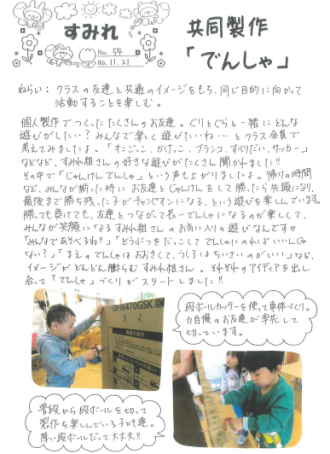 すみれ
No. 54
R6. 11. 21
共同製作
「でんしゃ」
ねらい：クラスの友達と共通のイメージをもち、同じ目的に向かって
活動することを楽しむ。
個人製作でつくったたくさんのお友達。ぐりとぐらと一緒にどんな
遊びがしたい？みんなで楽しく遊びたいね…とクラス全員で
考えてみましたよ。「すなごっこ、かけっこ、ブランコ、すべりだい、サッカー」
などなど、すみれ組さんの好きな遊びがたくさん聞かれました!!
その中で「じゃんけんでんしゃ」という声も上がりましたよ。帰りの時間
など、みんなが揃った時にお友達とじゃんけんをして勝ったら先頭になり、
最後まで勝ち残った子がチャンピオンになる、という遊びを楽しんでいます。
勝っても負けても、友達とつながって長いでんしゃになるのが楽しくて、
みんなが笑顔になるすみれ組さんのお気に入りの遊びなんです♡
「みんなであそべるね!」「どうぶつをだっこしてでんしゃにのればいいんじゃ
ない?」「まえのでんしゃはおおきくて、うしろはちいさいのがいい」など、
イメージがどんどん膨らむすみれ組さん。それぞれのアイディアを出し
合って「でんしゃ」づくりがスタートしました!!
段ボールカッターを使って車体づくり。
力自慢のお友達が率先して
切っています。
普段から段ボールを切って
製作を楽しんでいる子ども達。
厚い段ボールだって大丈夫!!